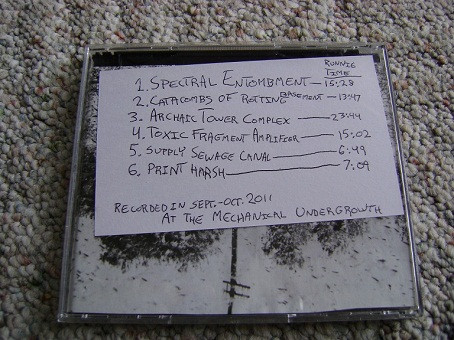 RUNNIE
TIME
1. SPECTRAL ENTOMBMENT — 15:28
2. CATACOMBS OF ROTTING BASEMENT — 13:47
3. ARCHAIC TOWER COMPLEX — 23:44
4. TOXIC FRAGMENT AMPLIFIER — 15:02
5. SUPPLY SEWAGE CANAL — 6:49
6. PRINT HARSH — 7:09
RECORDED IN SEPT.-OCT. 2011
AT THE MECHANICAL UNDERGROWTH